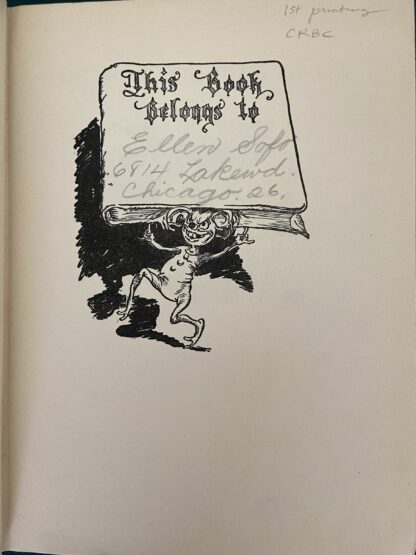 1st printing
CRBC
This Book
Belongs to
Ellen Sofo
6814 Lakewd.
Chicago. 26.